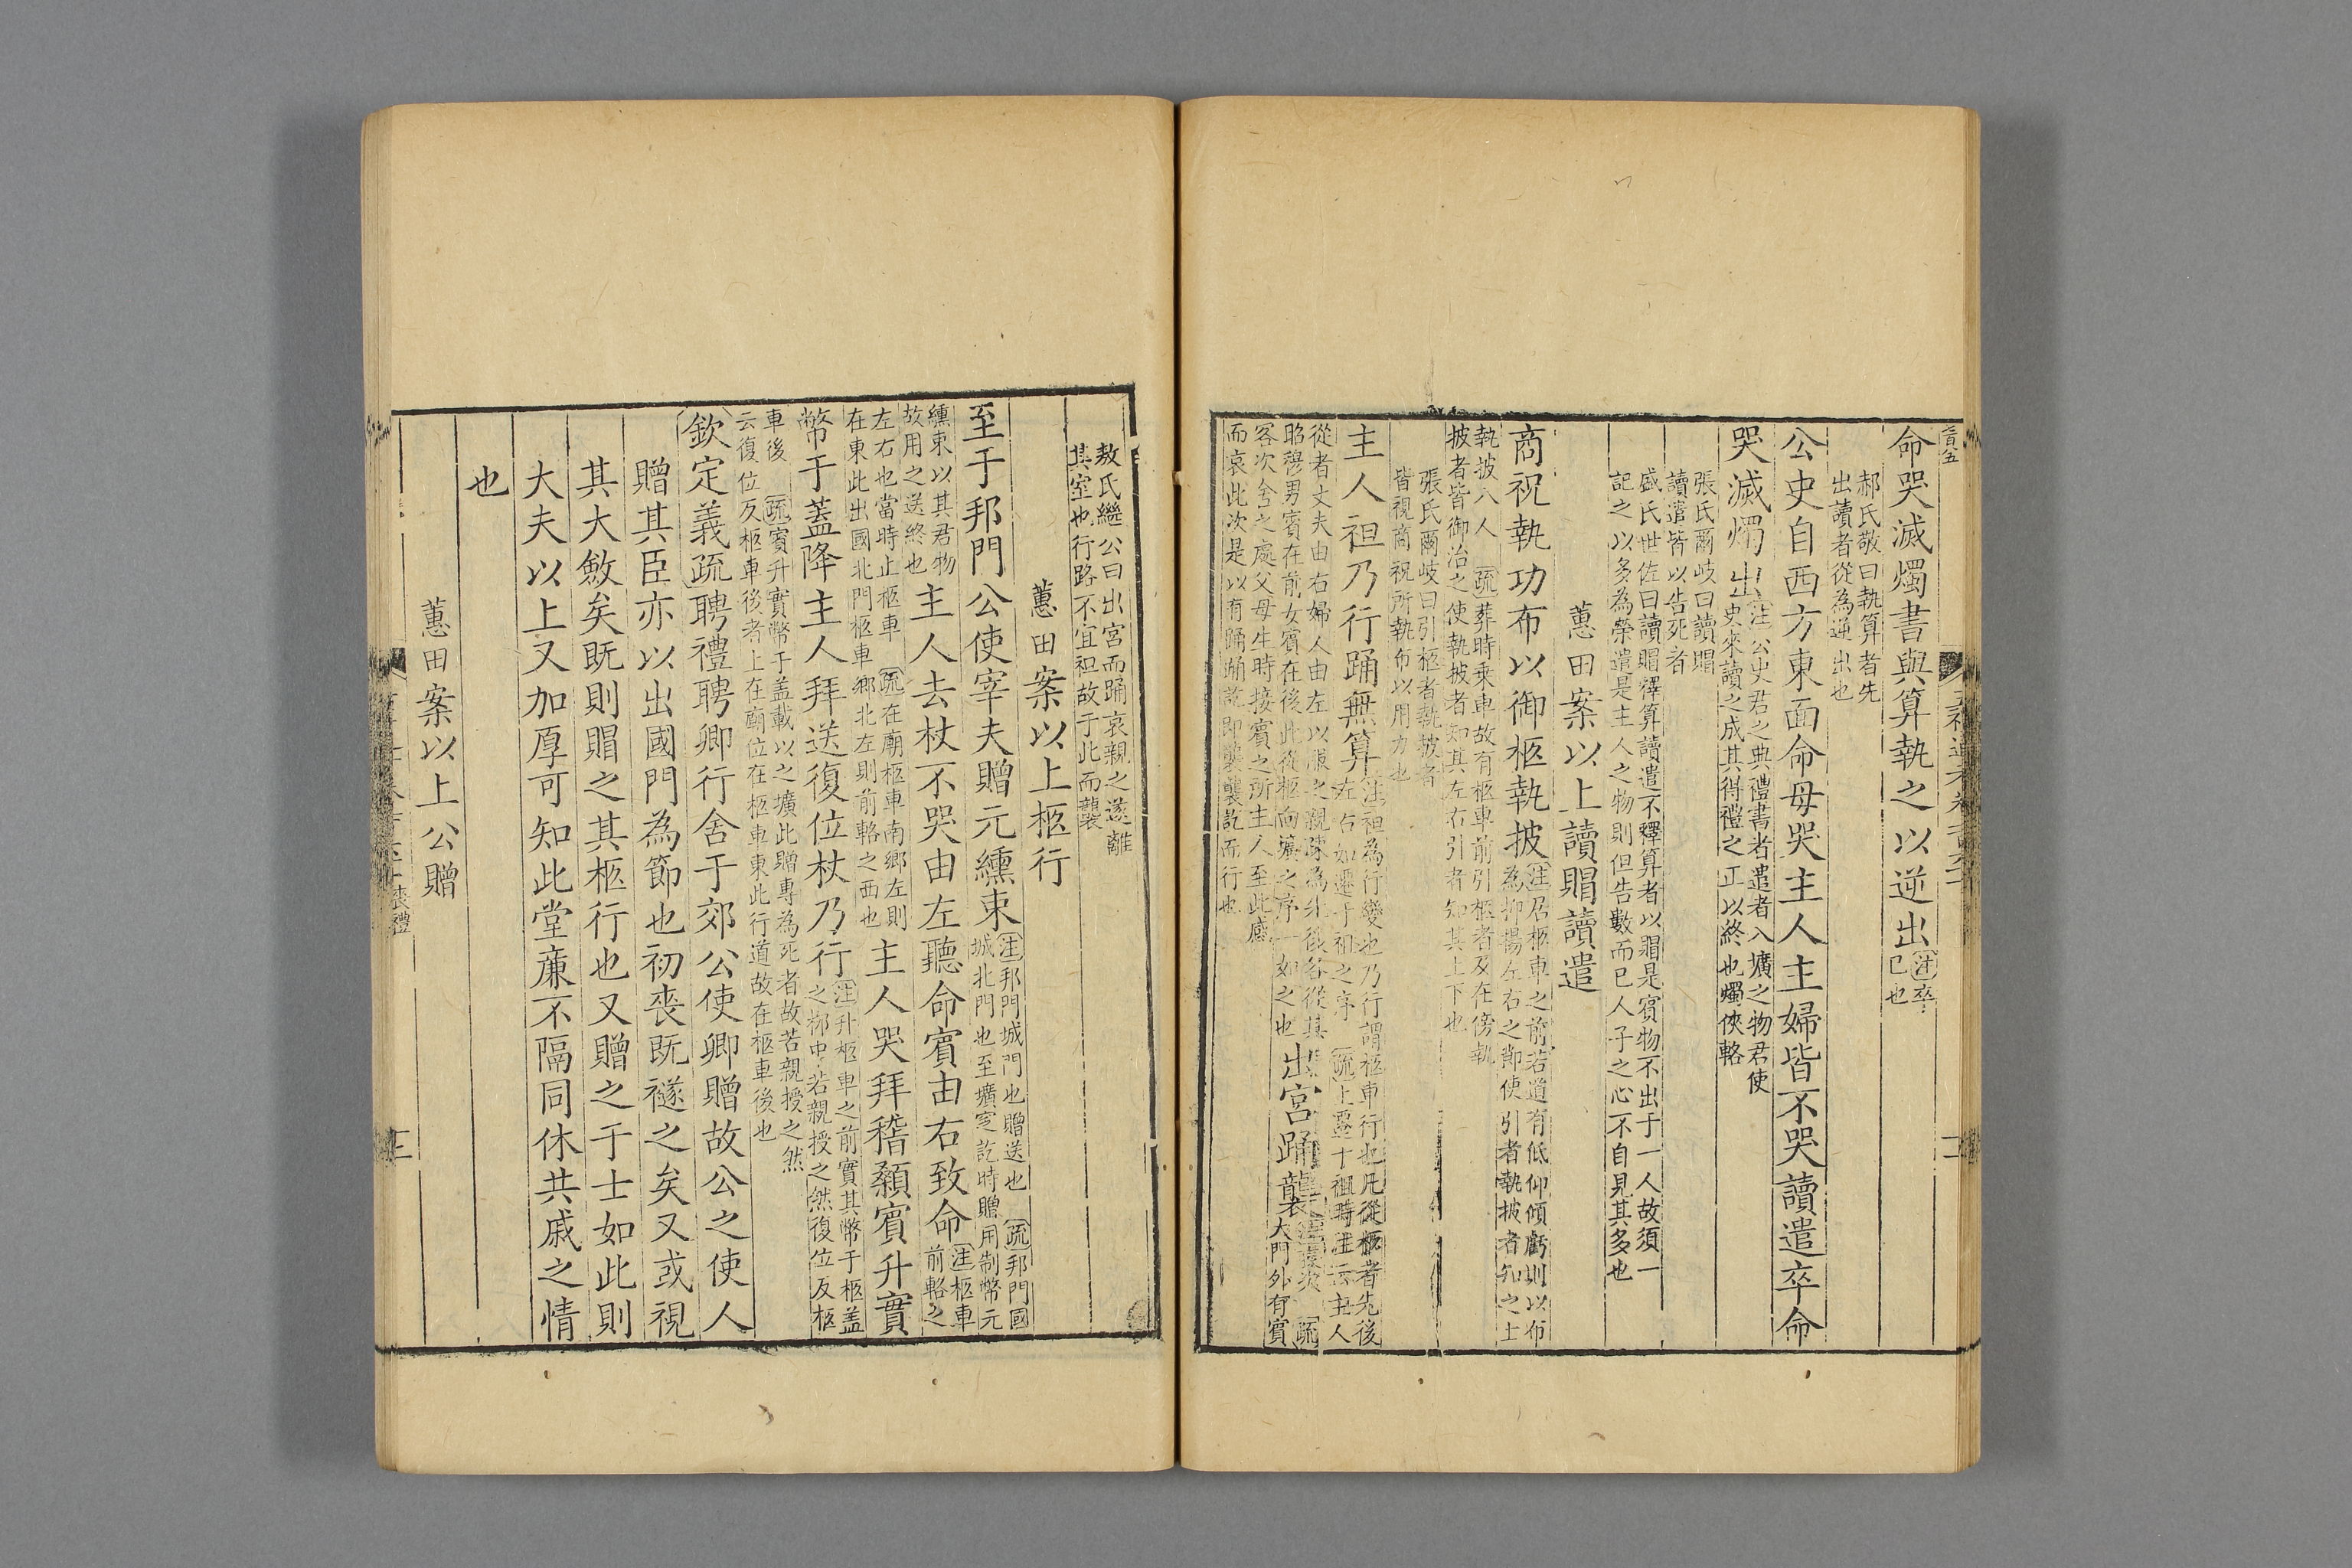 命哭滅燭書與算執之以逆出注卒
已也
郝氏敬曰執算者先
出讀者從為逆出也
公史自西方東面命毋哭主人主婦皆不哭讀遣卒命
哭滅燭出注公史君之典禮書者遣者入壙之物君使
史來讀之成其得禮之正以終也燭俠輅
張氏爾岐曰讀賵
讀遣皆以告死者
盛氏世佐曰讀賵釋算讀遣不釋算者以賵是賓物不出于一人故須一
記之以多為榮遣是主人之物則但告數而已人子之心不自見其多也
蕙田案以上讀賵讀遣
商祝執功布以御柩執披注居柩車之前若道有低仰傾虧則以布
為抑揚左右之節使引者執披者知之士
執披八人 疏葬時乘車故有柩車前引柩者及在傍執
披者皆御治之使執披者知其左右引者知其上下也
張氏爾岐曰引柩者執披者
皆視商祝所執布以用力也
主人袒乃行踊無算注袒為行變也乃行謂柩車行也凡從柩者先後
左右如遷于祖之序 疏上遷于祖時注云主人
從者丈夫由右婦人由左以服之親疏為先後各從其
昭穆男賓在前女賓在後此從柩向壙之序一如之也
出宮踊襲注哀次 疏
大門外有賓
客次舍之處父母生時接賓之所主人至此感
而哀此次是以有踊踊訖即襲襲訖而行也
敖氏繼公曰出宮而踊哀親之遂離
其室也行路不宜袒故于此而襲
蕙田案以上柩行
至于邦門公使宰夫贈元纁束注邦門城門也贈送也 疏邦門國
城北門也至壙窆訖時贈用制幣元
纁束以其君物
故用之送終也
主人去杖不哭由左聽命賓由右致命注柩車
前輅之
左右也當時止柩車 疏在廟柩車南鄉左則
在東此出國北門柩車鄉北左則前輅之西也
主人哭拜稽顙賓升實
幣于蓋降主人拜送復位杖乃行注升柩車之前實其幣于柩蓋
之柳中若親授之然復位反柩
車後 疏賓升實幣于蓋載以之壙此贈專為死者故若親授之然
云復位反柩車後者上在廟位在柩車東此行道故在柩車後也
欽定義疏聘禮聘卿行舍于郊公使卿贈故公之使人
贈其臣亦以出國門為節也初喪既襚之矣又或視
其大斂矣既則賵之其柩行也又贈之于士如此則
大夫以上又加厚可知此堂廉不隔同休共戚之情
也
蕙田案以上公贈